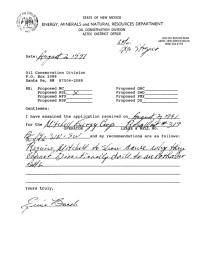 STATE OF NEW MEXICO
ENERGY, MINERALS and NATURAL RESOURCES DEPARTMENT
OIL CONSERVATION DIVISION
AZTEC DISTRICT OFFICE
Date: August 2, 1991
Oil Conservation Division
P.O. Box 2088
Santa Fe, NM 87504-2088
RE: Proposed MC Proposed DHC
Proposed NSL X Proposed SWD
Proposed NSP Proposed WFX
Proposed DD Proposed PMX
Gentlemen:
I have examined the application received on August 2, 1991
for the Mitchell Energy Corp #319
OPERATOR LEASE & WELL NO.
and my recommendations are as follows:
Require Mitchell to show cause why they
cannot Directionally drill to an orthodox
Yours truly,
Ernie Busch